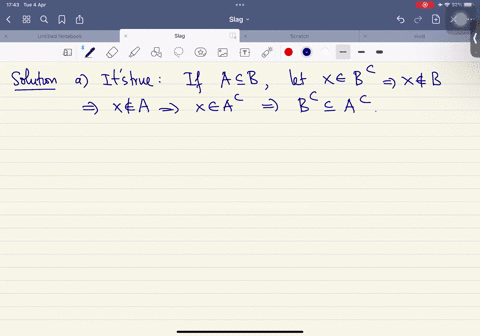 17:43 Tue 4 Apr
92%
Slag
Untitled Notebook
Slag
Scratch
Solution a) It's true: If A ⊆ B, let x ∈ B^C ⇒ x ∉ B
⇒ x ∉ A ⇒ x ∈ A^C ⇒ B^C ⊆ A^C.